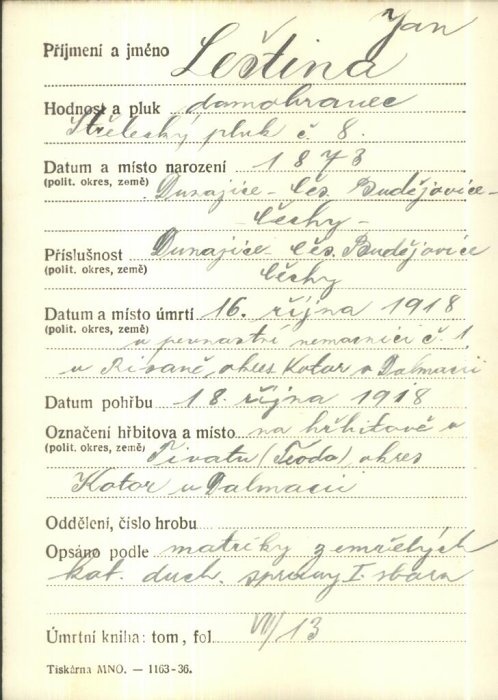 Jan
Příjmení a jméno Leština
Hodnost a pluk domobranec
Střelecký pluk č. 8.
Datum a místo narození 1873
(polit. okres, země) Dunajice - Čes. Budějovice -
Čechy -
Příslušnost Dunajice Čes. Budějovice
(polit. okres, země) Čechy
Datum a místo úmrtí 16. října 1918
(polit. okres, země) v pevnostní nemocnici č. 1.
v Risaně, okres Kotor v Dalmacii
Datum pohřbu 18. října 1918
Označení hřbitova a místo na hřbitově v
(polit. okres, země) Tivatu (Teodo) okres
Kotor v Dalmacii
Oddělení, číslo hrobu
Opsáno podle matriky zemřelých
kat. duch. správy I. sboru
Úmrtní kniha: tom, fol. VII/13
Tiskárna MNO. — 1163-36.